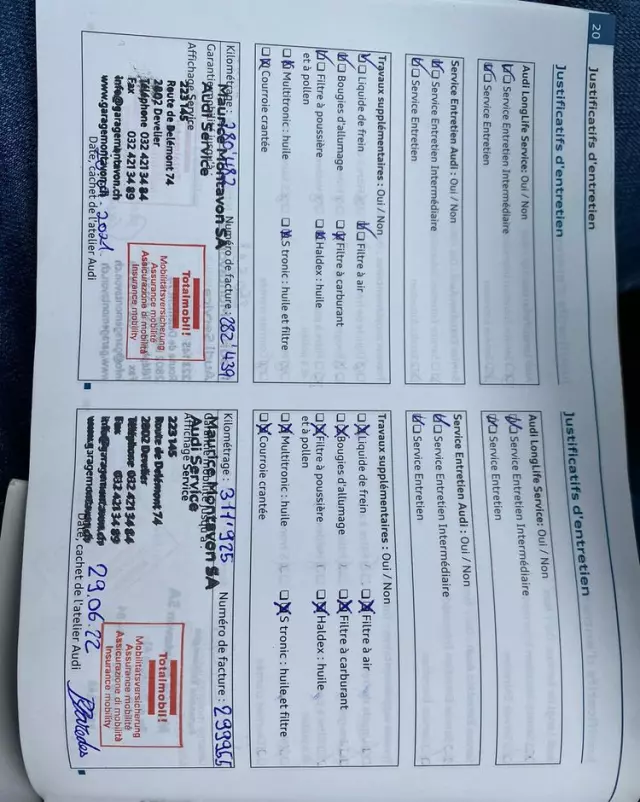 20
Justificatifs d'entretien
Justificatifs d'entretien
Audi LongLife Service: Oui / Non
Service Entretien Intermédiaire
Service Entretien
Service Entretien Audi : Oui / Non
Service Entretien Intermédiaire
Service Entretien
Travaux supplémentaires : Oui / Non
Liquide de frein
Filtre à air
Bougies d'allumage
Filtre à carburant
Filtre à poussière
et à pollen
Haldex : huile
Multitronic : huile
S tronic : huile et filtre
Courroie crantée
Kilométrage : 280'487 Numéro de facture : 282'439
Maurice Montavon SA
Audi Service
Affichage Service
223 145
Route de Delémont 74
2802 Develier
Téléphone 032 421 34 84
Fax 032 421 34 89
info@garagemontavon.ch
www.garagemontavon.ch
2021
Date, cachet de l'atelier Audi
Totalmobil!
Mobilitätsversicherung
Assurance mobilité
Assicurazione di mobilità
Insurance mobility
Justificatifs d'entretien
Audi LongLife Service: Oui / Non
Service Entretien Intermédiaire
Service Entretien
Service Entretien Audi : Oui / Non
Service Entretien Intermédiaire
Service Entretien
Travaux supplémentaires : Oui / Non
Liquide de frein
Filtre à air
Bougies d'allumage
Filtre à carburant
Filtre à poussière
et à pollen
Haldex : huile
Multitronic : huile
S tronic : huile et filtre
Courroie crantée
Kilométrage : 311'925 Numéro de facture : 299965
Maurice Montavon SA
Audi Service
Affichage Service
223 145
Route de Delémont 74
2802 Develier
Téléphone 032 421 34 84
Fax 032 421 34 89
info@garagemontavon.ch
www.garagemontavon.ch
29.06.22
Date, cachet de l'atelier Audi
Totalmobil!
Mobilitätsversicherung
Assurance mobilité
Assicurazione di mobilità
Insurance mobility